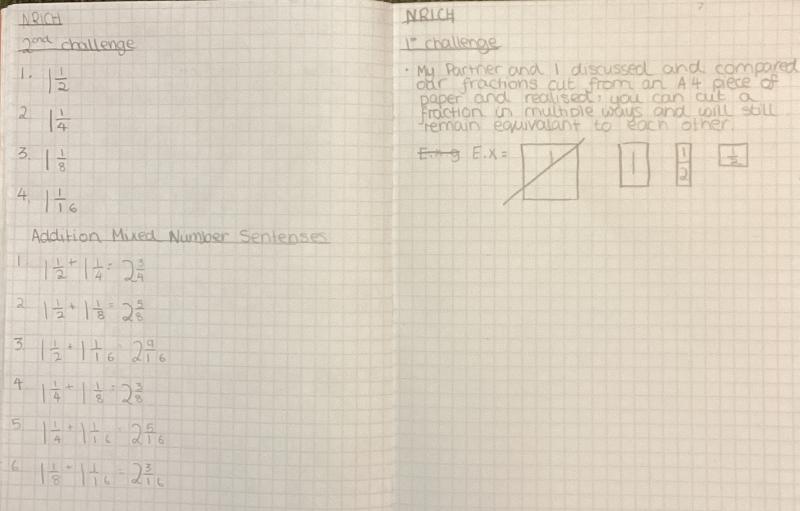 NRICH
2nd challenge
1. 1 1/2
2 1 1/4
3. 1 1/8
4. 1 1/16
Addition Mixed Number Sentenses
1 1 1/2 + 1 1/4 = 2 3/4
2 1 1/2 + 1 1/8 = 2 5/8
3 1 1/2 + 1 1/16 = 2 9/16
4 1 1/4 + 1 1/8 = 2 3/8
5 1 1/4 + 1 1/16 = 2 5/16
6 1 1/8 + 1 1/16 = 2 3/16
NRICH
1st challenge
• My Partner and I discussed and compared
our fractions cut from an A4 piece of
paper and realised, you can cut a
fraction in multiple ways and will still
remain equivalant to each other.
E.X =
1
1
1
2
1/2